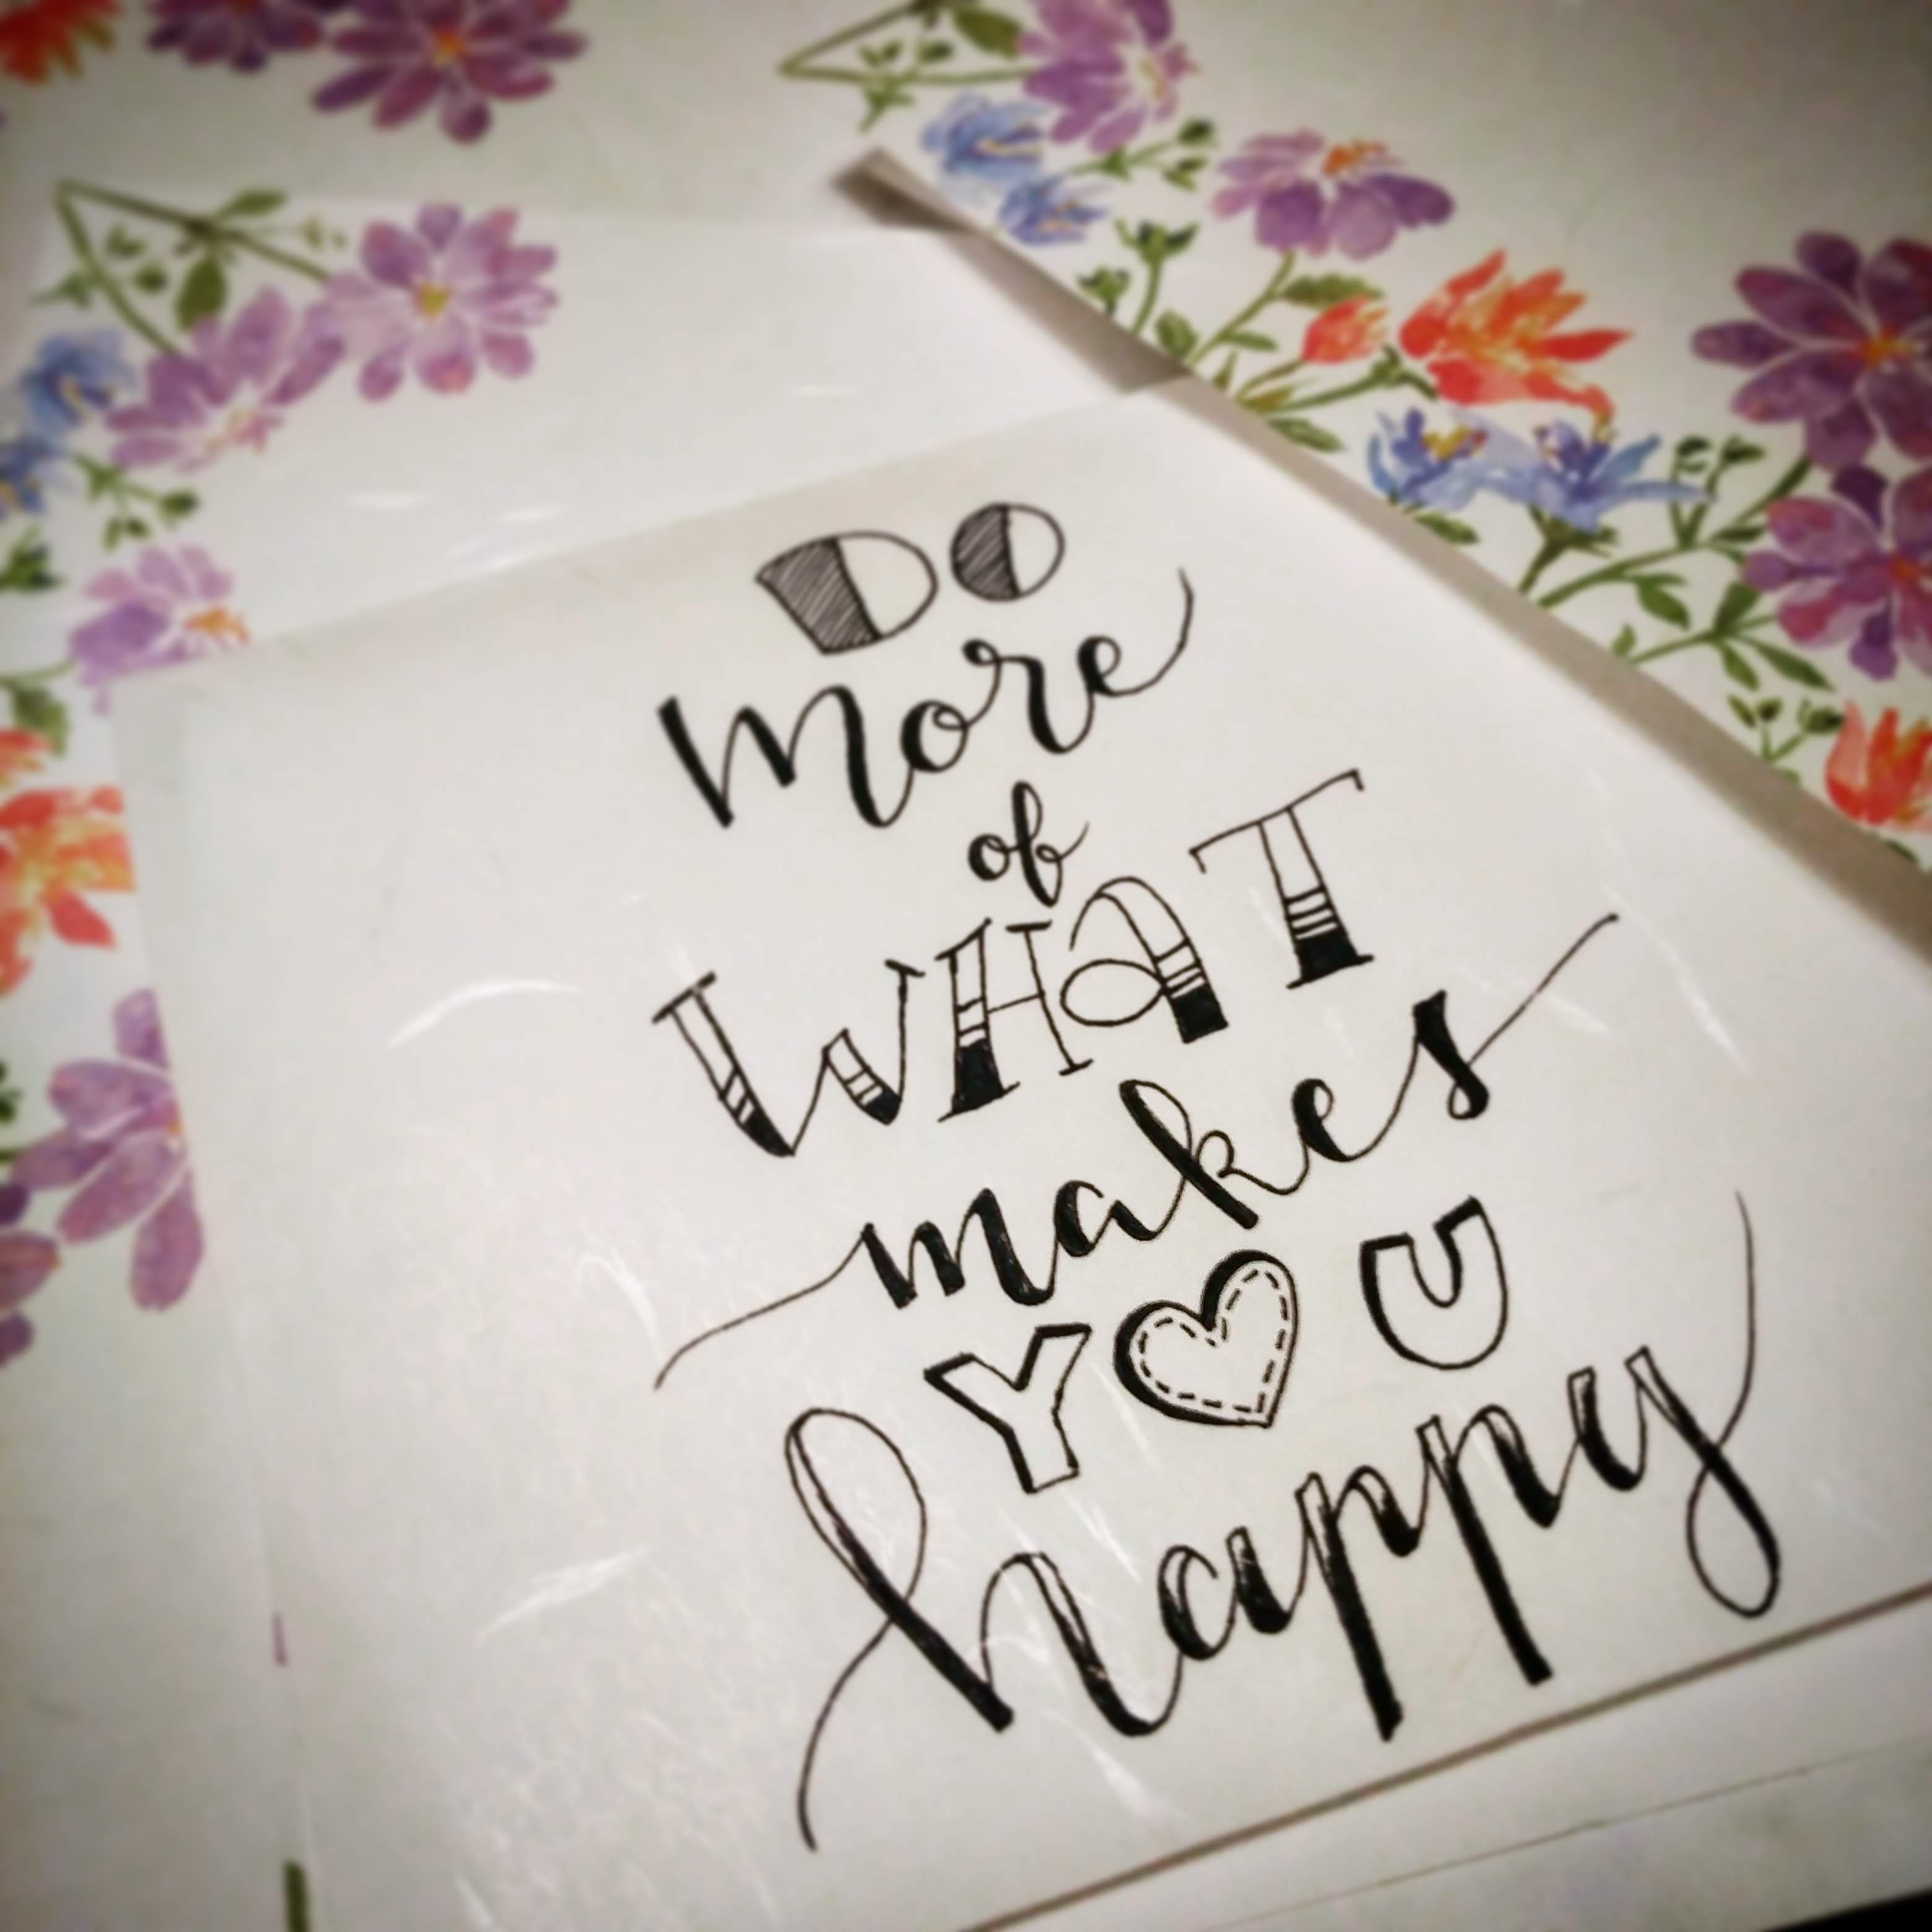 DO
more
of
WHAT
makes
Y♡U
happy